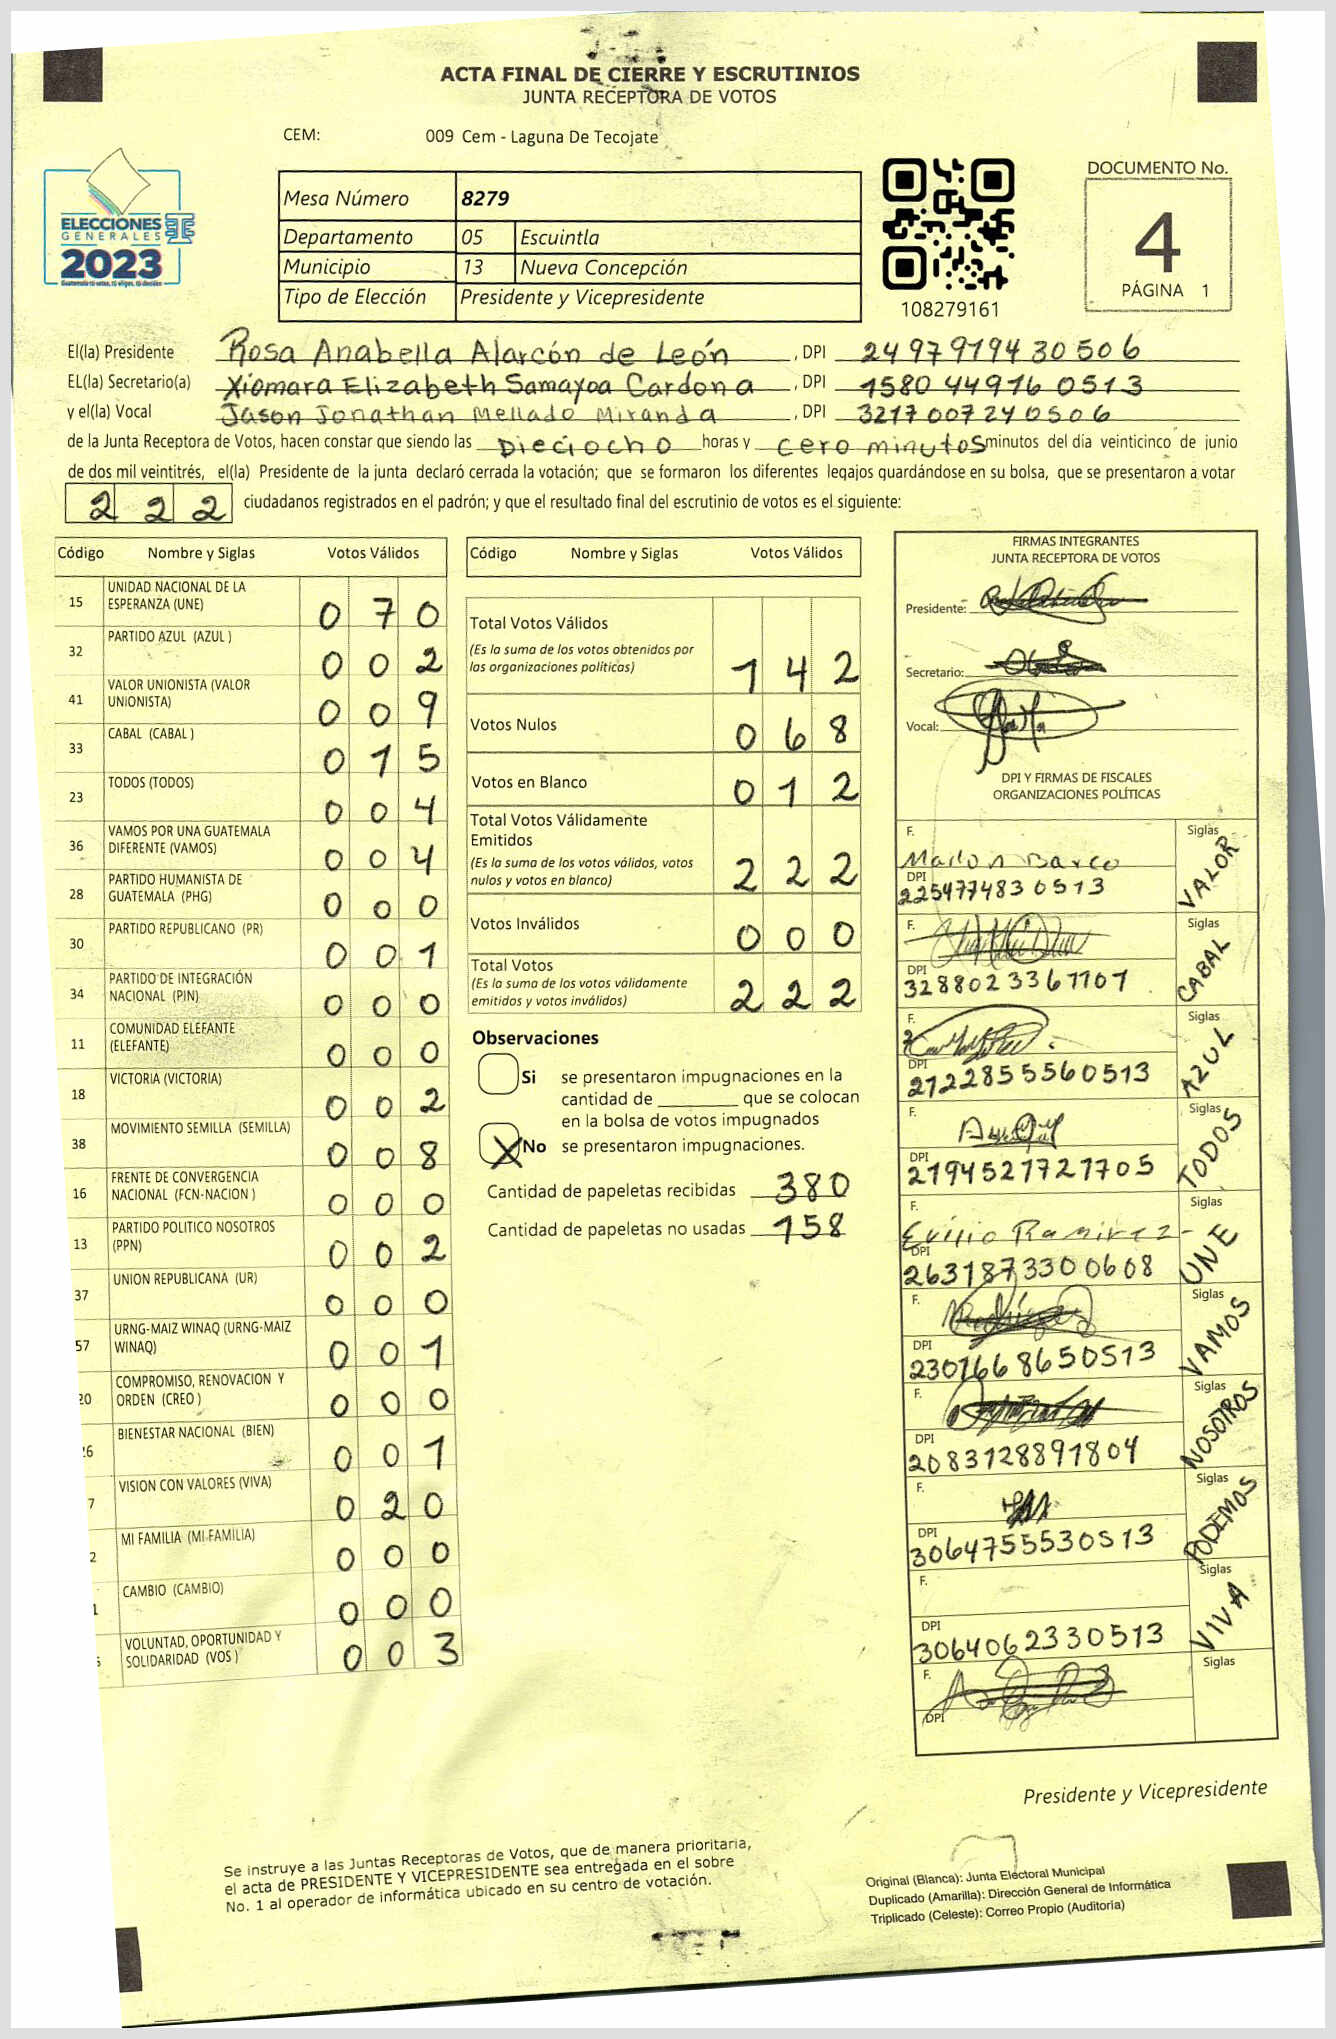 ACTA FINAL DE CIERRE Y ESCRUTINIOS
JUNTA RECEPTORA DE VOTOS
CEM: 009 Cem - Laguna De Tecojate
ELECCIONES
GENERALES
2023
Guatemala tú votas, tú eliges, tú decides
Mesa Número 8279
Departamento 05 Escuintla
Municipio 13 Nueva Concepción
Tipo de Elección Presidente y Vicepresidente
108279161
DOCUMENTO No.
4
PÁGINA 1
El(la) Presidente Rosa Anabella Alarcón de León , DPI 2497919430506
EL(la) Secretario(a) Xiomara Elizabeth Samayoa Cardona , DPI 1580449160513
y el(la) Vocal Jason Jonathan Mellado Miranda , DPI 3217007240506
de la Junta Receptora de Votos, hacen constar que siendo las Dieciocho horas y cero minutos minutos del día veinticinco de junio
de dos mil veintitrés, el(la) Presidente de la junta declaró cerrada la votación; que se formaron los diferentes legajos guardándose en su bolsa, que se presentaron a votar
222 ciudadanos registrados en el padrón; y que el resultado final del escrutinio de votos es el siguiente:
Código Nombre y Siglas Votos Válidos
15 UNIDAD NACIONAL DE LA ESPERANZA (UNE) 070
32 PARTIDO AZUL (AZUL ) 002
41 VALOR UNIONISTA (VALOR UNIONISTA) 009
33 CABAL (CABAL ) 015
23 TODOS (TODOS) 004
36 VAMOS POR UNA GUATEMALA DIFERENTE (VAMOS) 004
28 PARTIDO HUMANISTA DE GUATEMALA (PHG) 000
30 PARTIDO REPUBLICANO (PR) 001
34 PARTIDO DE INTEGRACIÓN NACIONAL (PIN) 000
11 COMUNIDAD ELEFANTE (ELEFANTE) 000
18 VICTORIA (VICTORIA) 002
38 MOVIMIENTO SEMILLA (SEMILLA) 008
16 FRENTE DE CONVERGENCIA NACIONAL (FCN-NACION ) 000
13 PARTIDO POLITICO NOSOTROS (PPN) 002
37 UNION REPUBLICANA (UR) 000
57 URNG-MAIZ WINAQ (URNG-MAIZ WINAQ) 001
20 COMPROMISO, RENOVACION Y ORDEN (CREO ) 000
26 BIENESTAR NACIONAL (BIEN) 001
7 VISION CON VALORES (VIVA) 020
2 MI FAMILIA (MI FAMILIA) 000
1 CAMBIO (CAMBIO) 000
VOLUNTAD, OPORTUNIDAD Y SOLIDARIDAD (VOS ) 003
Código Nombre y Siglas Votos Válidos
Total Votos Válidos
(Es la suma de los votos obtenidos por
las organizaciones políticas) 142
Votos Nulos 068
Votos en Blanco 012
Total Votos Válidamente
Emitidos
(Es la suma de los votos válidos, votos
nulos y votos en blanco) 222
Votos Inválidos 000
Total Votos
(Es la suma de los votos válidamente
emitidos y votos inválidos) 222
Observaciones
Si se presentaron impugnaciones en la
cantidad de ________ que se colocan
en la bolsa de votos impugnados
X No se presentaron impugnaciones.
Cantidad de papeletas recibidas 380
Cantidad de papeletas no usadas 158
FIRMAS INTEGRANTES
JUNTA RECEPTORA DE VOTOS
Presidente:
Secretario:
Vocal:
DPI Y FIRMAS DE FISCALES
ORGANIZACIONES POLÍTICAS
F. Siglas
Marlon Barco VALOR
DPI
2254774830513
F. Siglas
CABAL
DPI
3288023367107
F. Siglas
AZUL
DPI
2122855560513
F. Siglas
TODOS
DPI
2194527721705
F. Siglas
Evilio Ramirez UNE
DPI
2631873300608
F. Siglas
Rodríguez VAMOS
DPI
2301668650513
F. Siglas
NOSOTROS
DPI
2083128891804
F. Siglas
PODEMOS
DPI
3064755530513
F. Siglas
VIVA
DPI
3064062330513
F. Siglas
DPI
Presidente y Vicepresidente
Se instruye a las Juntas Receptoras de Votos, que de manera prioritaria,
el acta de PRESIDENTE Y VICEPRESIDENTE sea entregada en el sobre
No. 1 al operador de informática ubicado en su centro de votación.
Original (Blanca): Junta Electoral Municipal
Duplicado (Amarilla): Dirección General de Informática
Triplicado (Celeste): Correo Propio (Auditoría)